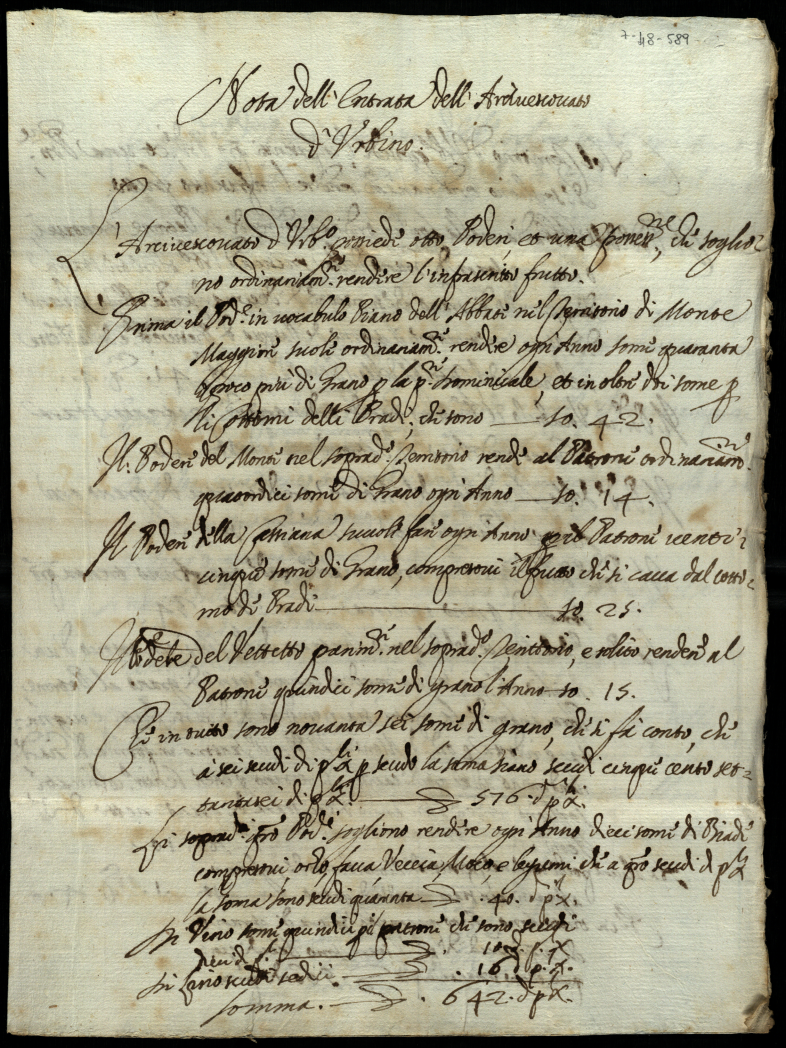 7-48-589
Nota dell'Entrata dell'Arcivescovato
d'Urbino.
L'Arcivescovato d'Urb.o possiede otto Poderi, et una che soglio=
no ordinariam.te rendere l'infrascritto frutto.
Prima il Pod.e in vocabulo Piano dell'Abbate nel Territorio di Monte
Maggiore suole ordinariam.te rendere ogni Anno some quaranta
poco più di Grano p la p.te Dominicale, et in oltre doi some p
li Cottimi delli Pradi, che sono — so. 42.
Il Podere del Monte nel soprad.o Territorio rende al Patrone ordinariam.te
quatordici some di Grano ogni Anno — so. 14.
Il Podere della suole fare ogni Anno p il Patrone venti=
cinque some di Grano, compresovi il frutto che si cava dal cotti=
mo de Pradi — so. 25.
Il Podere del Vettetto parim.te nel soprad.o Territorio, è solito rendere al
Patrone quindici some di grano l'Anno so. 15.
Che in tutto sono novanta sei some di grano, che si fà conto, che
a sei scudi di p scudo la soma siano scudi cinque cento set=
tantasei di — 576. d
Li soprad.i Pod.i sogliono rendere ogni Anno dieci some di Biade
compresovi orzo fava Veccia Moco, e legumi che a scudi d
la soma sono scudi quaranta — . 40. d
In Vino some quindici p il patrone che sono scudi
dieci — . 10
In Lino scudi sedici — . 16
Somma. — . 642. d